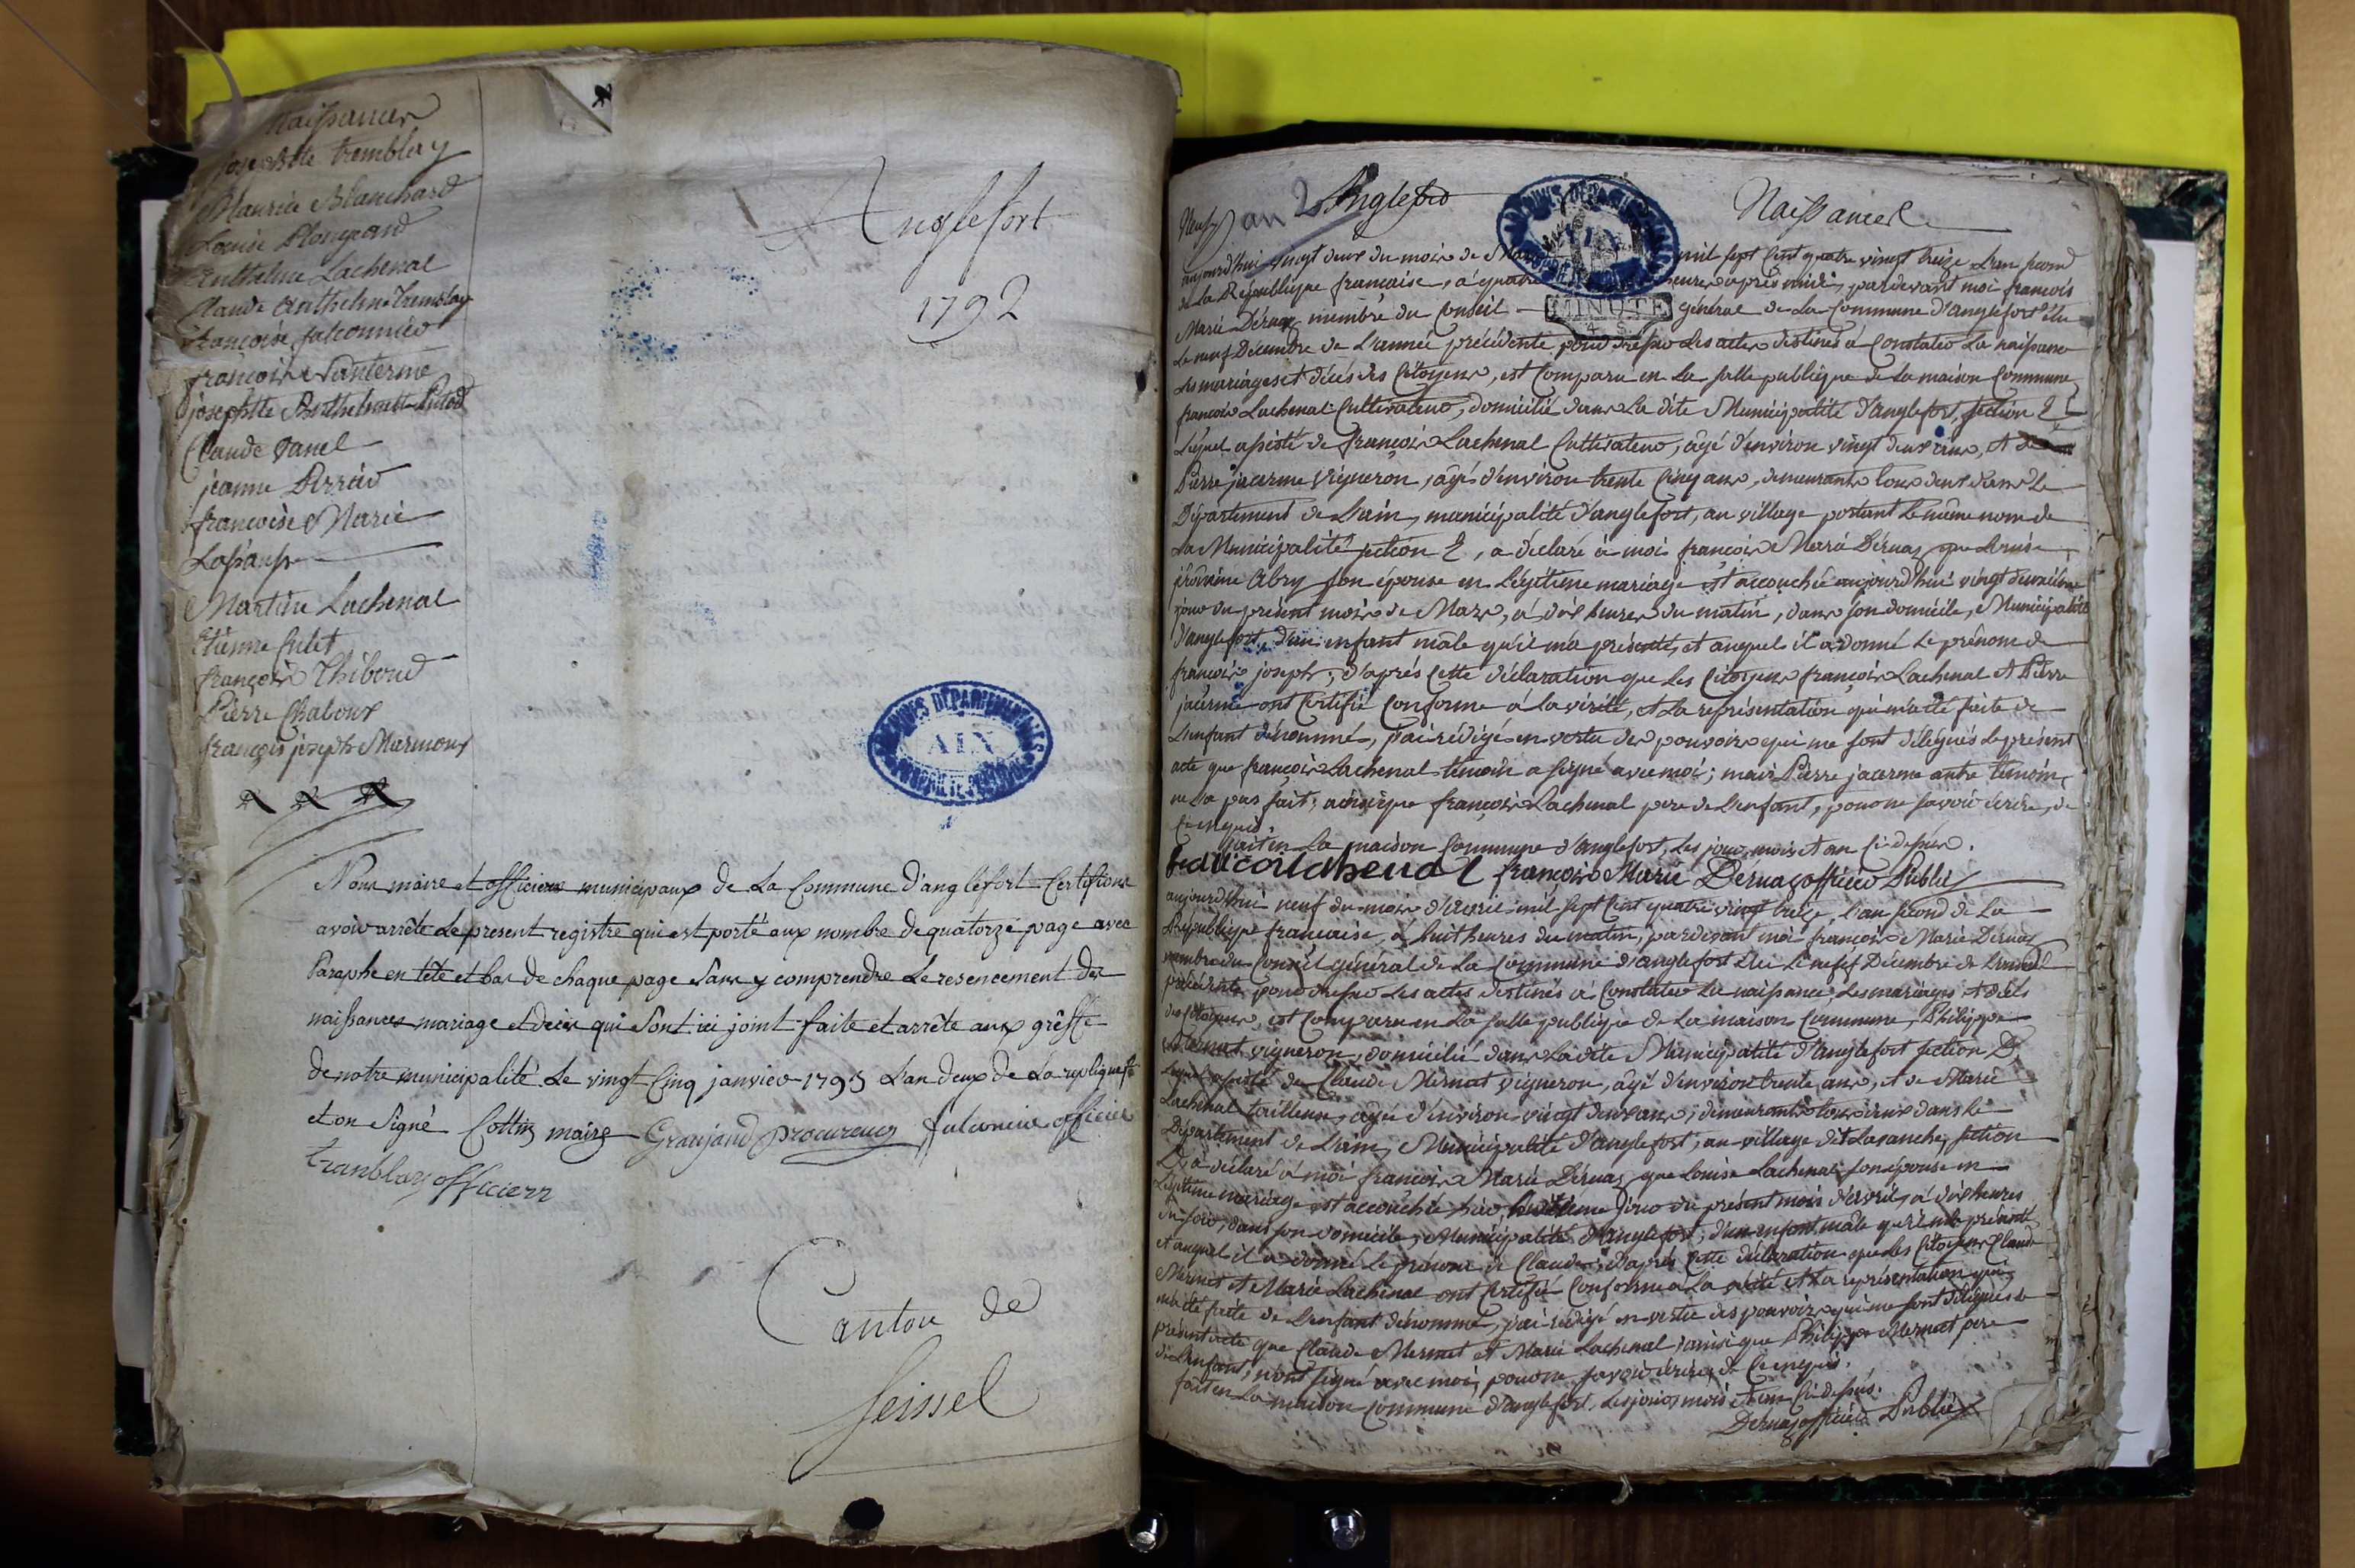 Naissances
josephte tremblay
Maurice Blanchard
Louise
Anthelme Lachenal
Claude Anthelme Tremblay
françoise falconnier
françoise vanterme
josephte Berthelmet
Claude vanel
jeanne Perrier
françoise Marie
Martine Lachenal
Etienne Culet
françois Thiboud
Pierre Chaboux
françois joseph Marmoux
Anglefort
1792
ARCHIVES DÉPARTEMENTALES
AIN
Nous maire et officiers municipaux de La Commune d'anglefort Certifions
avoir arrête Le present registre qui est porté aux nombre de quatorze page avec
Paraphe en tête et bas de chaque page Sans y comprendre Le resencement des
naissances mariage et deces qui Sont ici joint faite et arrête aux grêffe
de notre municipalité Le vingt Cinq janvier 1793 L'an deux de La
et on Signé Cottin maire Granjand procureur falconnier officier
tramblay officierz
Canton de
Seissel
Neuf an 2 Anglefort Naissances
ARCHIVES
MINUTE
aujourd'hui vingt deux du mois de mil sept Cent quatre vingt treize L'an second
de La République francaise, à quatre heures après midi, pardevant moi francois
Marie Dérnaz membre du Conseil général de La Commune d'anglefort élu
Le neuf Décembre de L'année précédente pour dresser Les actes destinés à Constater La naissance
Les mariages et décès des Citoyens, est Comparu en La salle publique de La maison Commune
françois Lachenal Cultivateur, domicilié dans La dite Municipalité d'anglefort, section E
Lequel assisté de françois Lachenal Cultivateur, âgé d'environ vingt deux ans, et de
Pierre jacerme vigneron, âgé d'environ trente Cinq ans, demeurants tous deux dans Le
Département de L'ain, municipalité d'anglefort, au village portant Le même nom de
La Municipalité section E, a déclaré à moi françois Marie Dérnaz que Louise
Abry son épouse en Légitime mariage est accouchée aujourd'hui vingt deuxième
jour du présent mois de Mars, à dix heures du matin, dans son domicile, Municipalité
d'anglefort, d'un enfant mâle qu'il m'a présenté, et auquel il a donné Le prénom de
françois joseph; d'après Cette déclaration que Les Citoyens françois Lachenal et Pierre
jacerme ont Certifié Conforme à La vérité, et La représentation qui m'a été faite de
L'enfant dénommé, j'ai rédigé en vertu des pouvoirs qui me sont délégués Le présent
acte que françois Lachenal témoin a signé avec moi; mais Pierre jacerme autre témoin
ne L'a pas fait, ainsi que françois Lachenal pere de L'enfant, pour ne savoir écrire, de
Ce enquis.
fait en La maison Commune d'anglefort, Les jour, mois et an Ci dessus.
françois Marie Dérnaz officier Public
aujourd'hui neuf du mois d'avril mil sept Cent quatre vingt treize, L'an second de La
République francaise, à huit heures du matin, pardevant moi françois Marie Dérnaz
membre du Conseil général de La Commune d'anglefort élu Le neuf Décembre de L'année
précédente pour dresser Les actes destinés à Constater La naissance, Les mariages et décès
des Citoyens, est Comparu en La salle publique de La maison Commune, Philippe
Mermet vigneron, domicilié dans La dite Municipalité d'anglefort section D
Lequel assisté de Claude Mermet vigneron, âgé d'environ trente ans, et de Marie
Lachenal tailleuse, agée d'environ vingt deux ans, demeurants tous deux dans Le
Département de L'ain, Municipalité d'anglefort, au village dit Lavanche, section
D, a déclaré à moi françois Marie Dérnaz que Louise Lachenal son épouse en
Légitime mariage est accouchée hier, huitième jour du présent mois d'avril, à dix heures
du soir, dans son domicile, Municipalité d'anglefort, d'un enfant mâle qu'il m'a présenté,
et auquel il a donné Le prénom de Claude; d'après Cette déclaration que Les Citoyens Claude
Mermet et Marie Lachenal ont Certifié Conforme à La vérité et La représentation qui
m'a été faite de L'enfant dénommé, j'ai rédigé en vertu des pouvoirs qui me sont délégués Le
présent acte que Claude Mermet et Marie Lachenal, ainsi que Philippe Mermet pere
de L'enfant, n'ont signé avec moi, pour ne savoir écrire, de Ce enquis.
fait en La maison Commune d'anglefort, Les jour, mois et an Ci dessus.
Dernaz officier Public